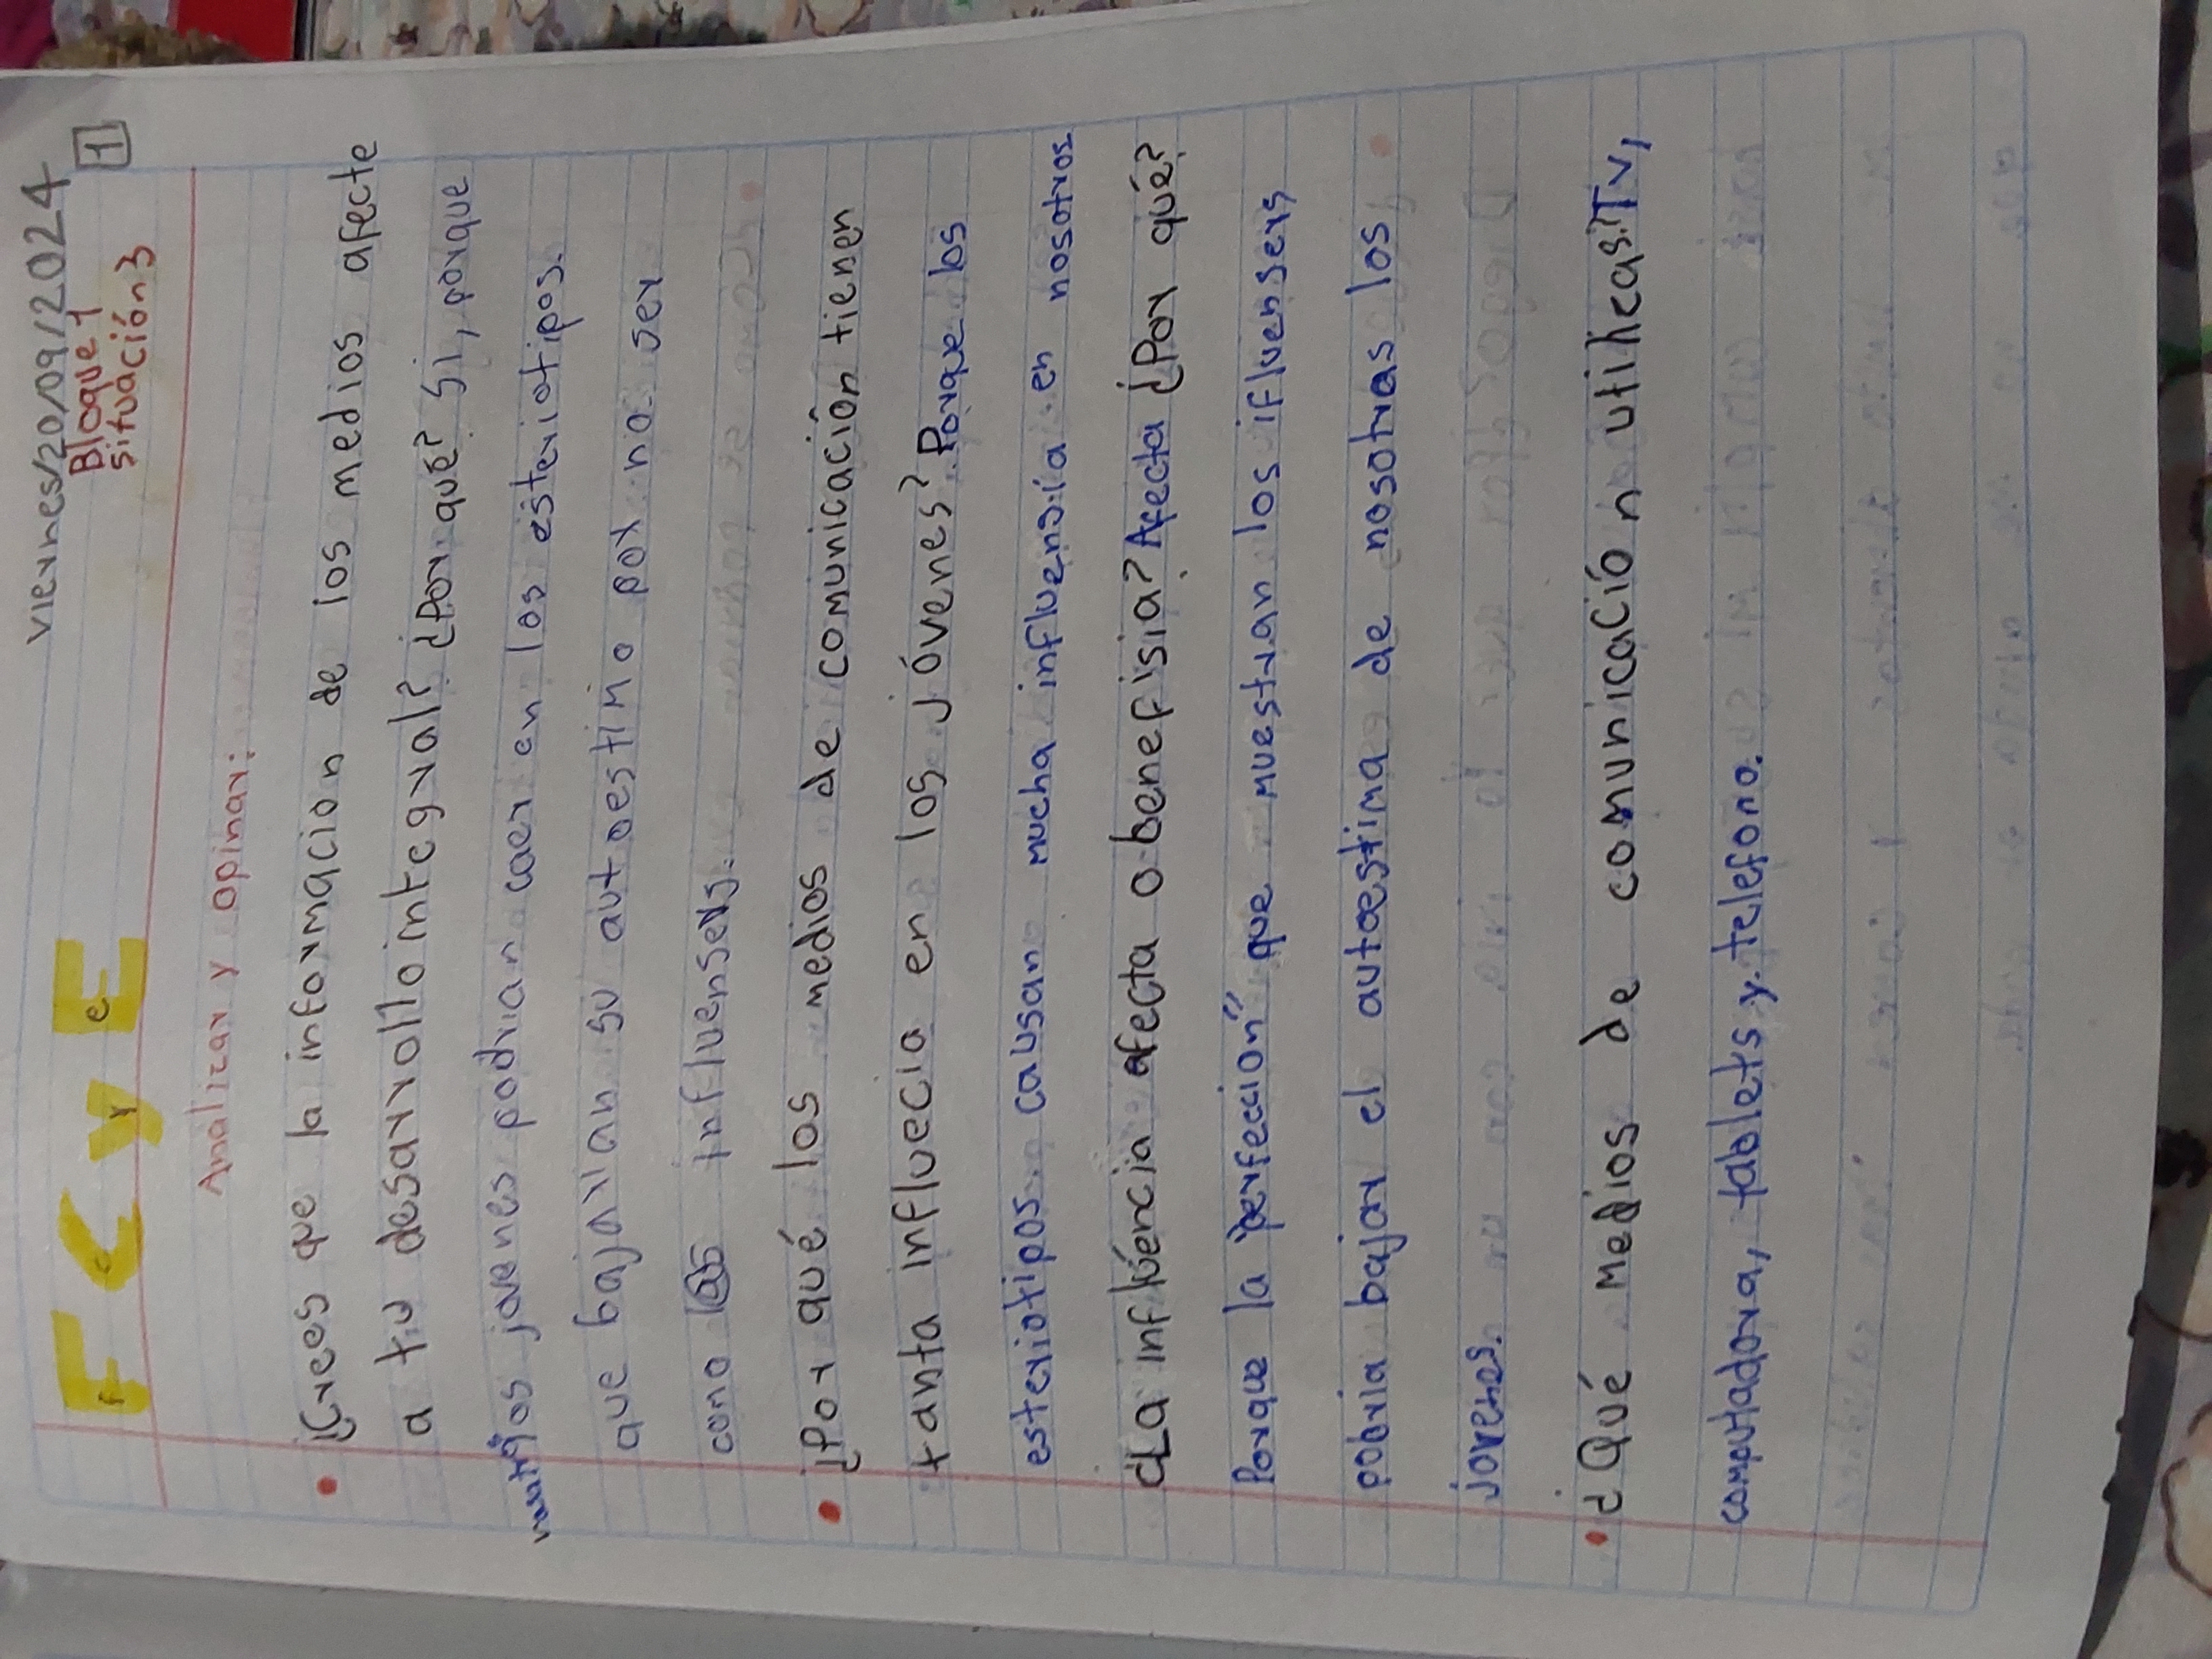 viernes/20/09/2024
F C y E
Bloque 1
situación3
1
Analizar y opinar:
¿Crees que la informacion de los medios afecte
a tu desarrollo integral? ¿Por qué? Si, porque
jovenes podrian caer en los esteriotipos.
que bajarian su autoestimo por no ser
como influensers.
¿Por qué los medios de comunicación tienen
tanta influecia en los jóvenes? Porque los
esteriotipos causan mucha influensía en nosotros
¿La influéncia afecta o benefisia? Afecta ¿Por qué?
Porque la "perfeccion" que muestran los ifluensers
pobria bajar el autoestima de nosotras los
jovenes.
¿Qué medios de comunicación utilicas? Tv,
computadora, tablets y telefono.